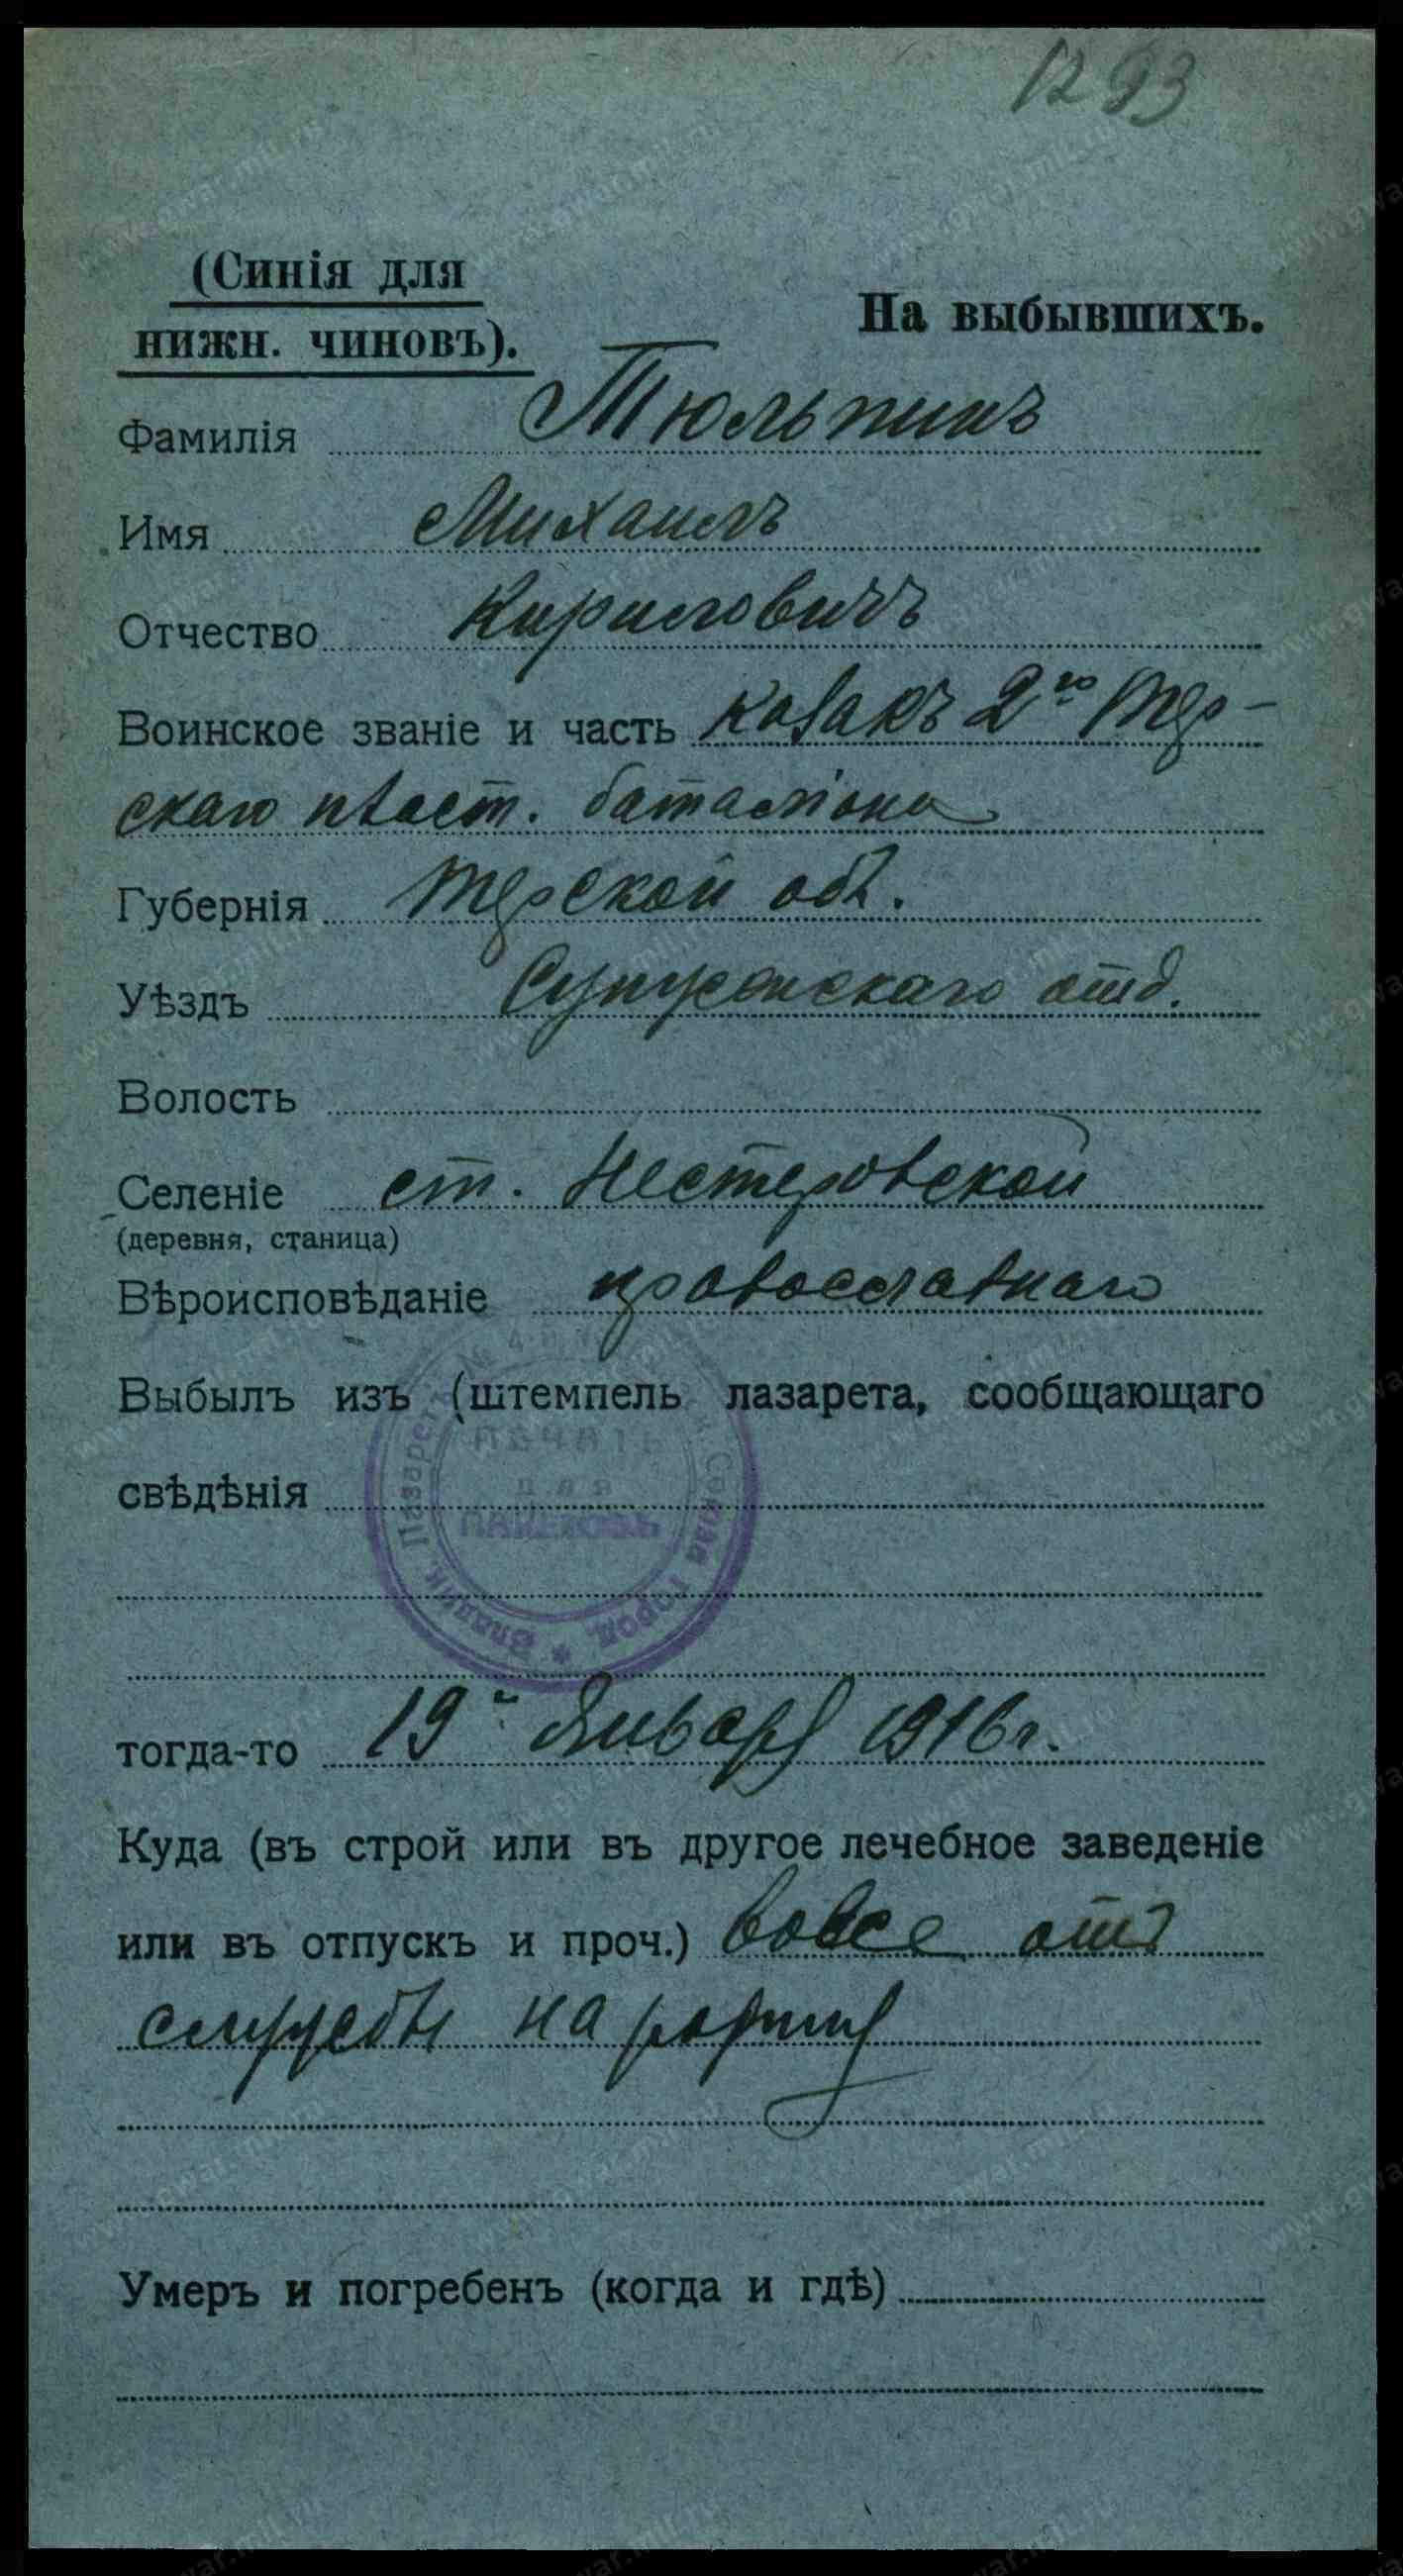 1293
(Синія для
нижн. чиновъ).
На выбывшихъ.
Фамилія Тюльпинъ
Имя Михаилъ
Отчество Кириловичъ
Воинское званіе и часть казакъ 2го Тер-
скаго пласт. баталіона
Губернія Терской обл.
Уѣздъ Сунженскаго отд.
Волость
Селеніе ст. Нестеровской
(деревня, станица)
Вѣроисповѣданіе православнаго
Выбылъ изъ (штемпель лазарета, сообщающаго
свѣдѣнія
ПЕЧАТЬ
для
ПАКЕТОВЪ
тогда-то 19й Января 1916 г.
Куда (въ строй или въ другое лечебное заведеніе
или въ отпускъ и проч.) вовсе отъ
службы на родину
Умеръ и погребенъ (когда и гдѣ)